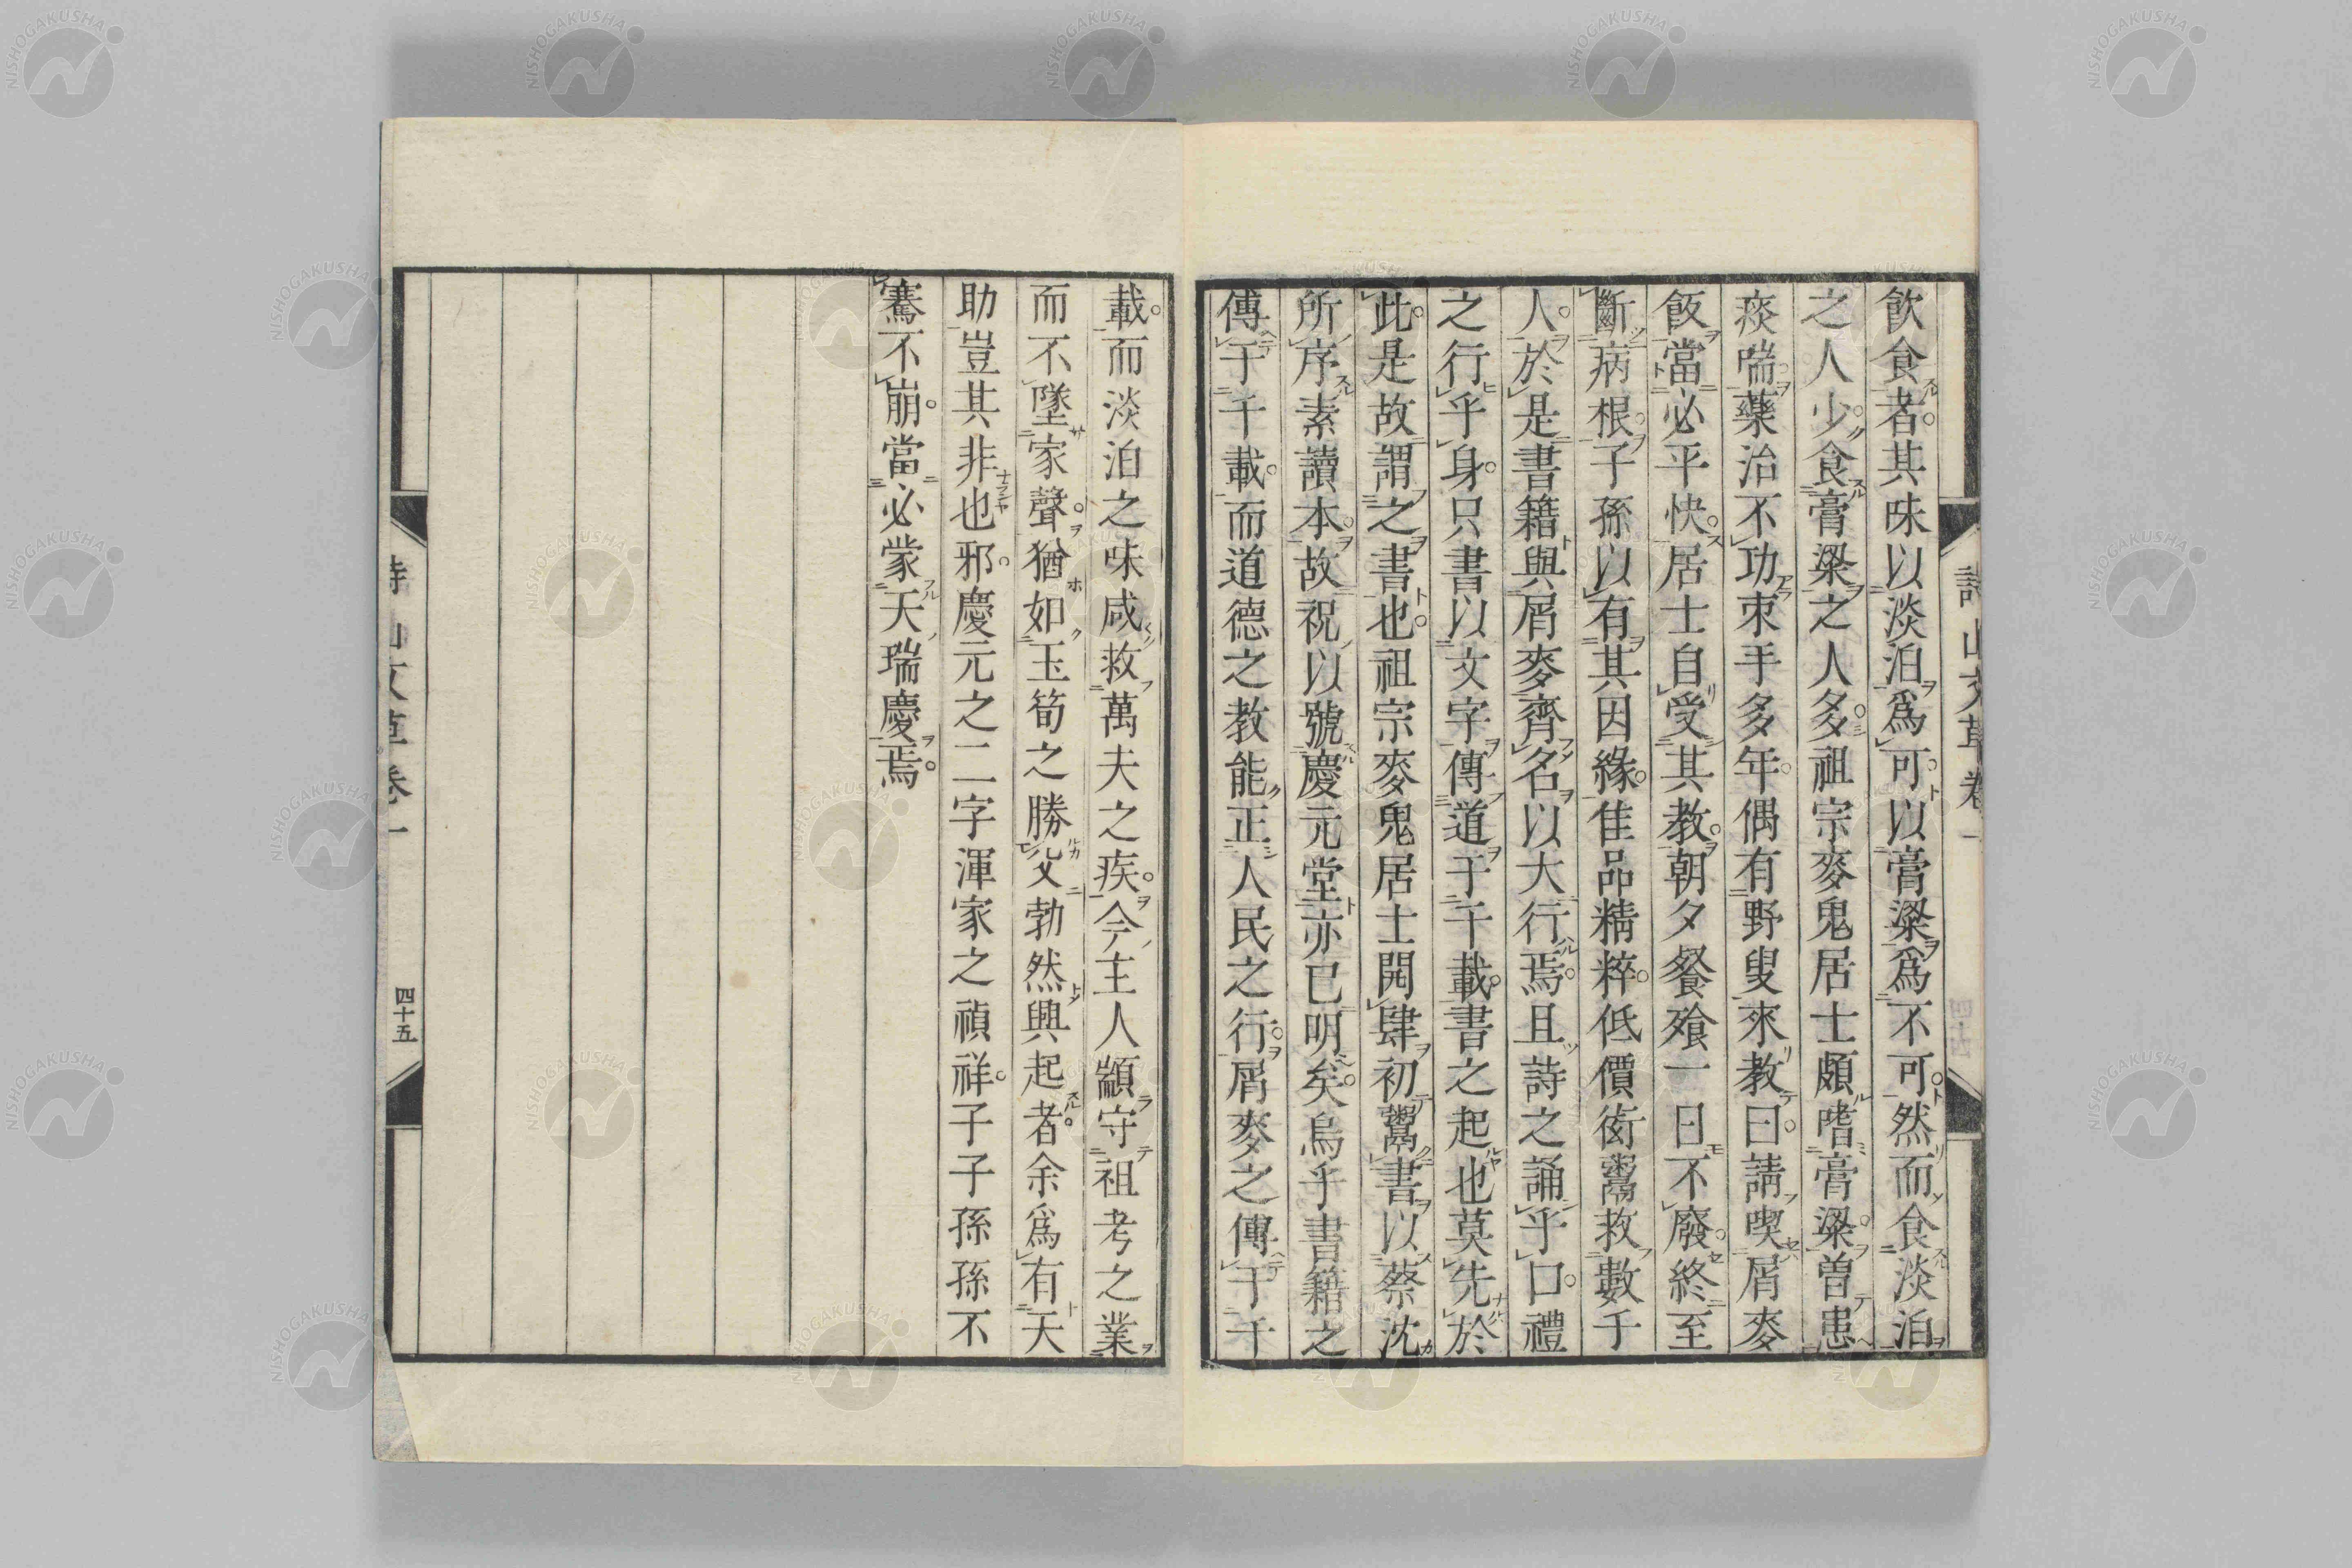 飲食者其味以淡泊爲可以膏粱爲不可然而食淡泊
之人少食膏粱之人多祖宗麥鬼居士頗嗜膏粱曽患
痰喘藥治不功束手多年偶有野叟來敎曰請喫屑麥
飯當必平快居士自受其敎朝夕餐飧一日不廢終至
斷病根子孫以有其因緣隹品精粹低價衒鬻救數千
人於是書籍與屑麥齊名以大行焉且詩之誦乎口禮
之行乎身只書以文字傳道于千載書之起也莫先於
此是故謂之書也祖宗麥鬼居士開肆初鬻書以蔡沈
所序素讀本故祝以號慶元堂亦已明矣烏乎書籍之
傳于千載而道德之敎能正人民之行屑麥之傳于千
載而淡泊之味咸救萬夫之疾今主人顓守祖考之業
而不墜家聲猶如玉筍之勝㝃勃然興起者余爲有天
助豈其非也邪慶元之二字渾家之禎祥子子孫孫不
騫不崩當必蒙天瑞慶焉
詩山文草卷一
四十五
NISHOGAKUSHA